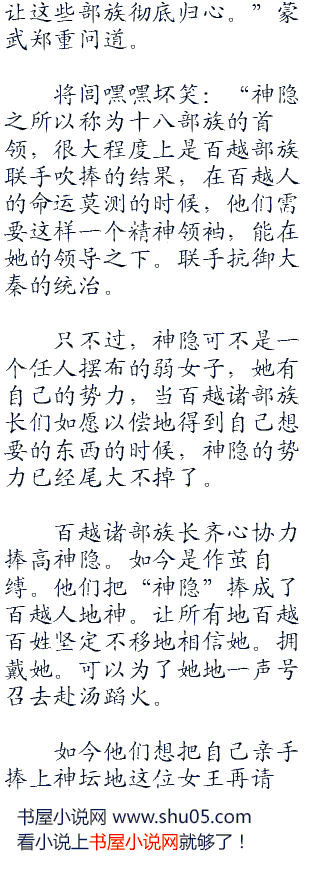 让这些部族彻底归心。”蒙
武郑重问道。
将闾嘿嘿坏笑：“神隐
之所以称为十八部族的首
领，很大程度上是百越部族
联手吹捧的结果，在百越人
的命运莫测的时候，他们需
要这样一个精神领袖，能在
她的领导之下。联手抗御大
秦的统治。
只不过，神隐可不是一
个任人摆布的弱女子，她有
自己的势力，当百越诸部族
长们如愿以偿地得到自己想
要的东西的时候，神隐的势
力已经尾大不掉了。
百越诸部族长齐心协力
捧高神隐。如今是作茧自
缚。他们把“神隐”捧成了
百越人地神。让所有地百越
百姓坚定不移地相信她。拥
戴她。可以为了她地一声号
召去赴汤蹈火。
如今他们想把自己亲手
捧上神坛地这位女王再请
书屋小说网 www.shu05.com
看小说上书屋小说网就够了！